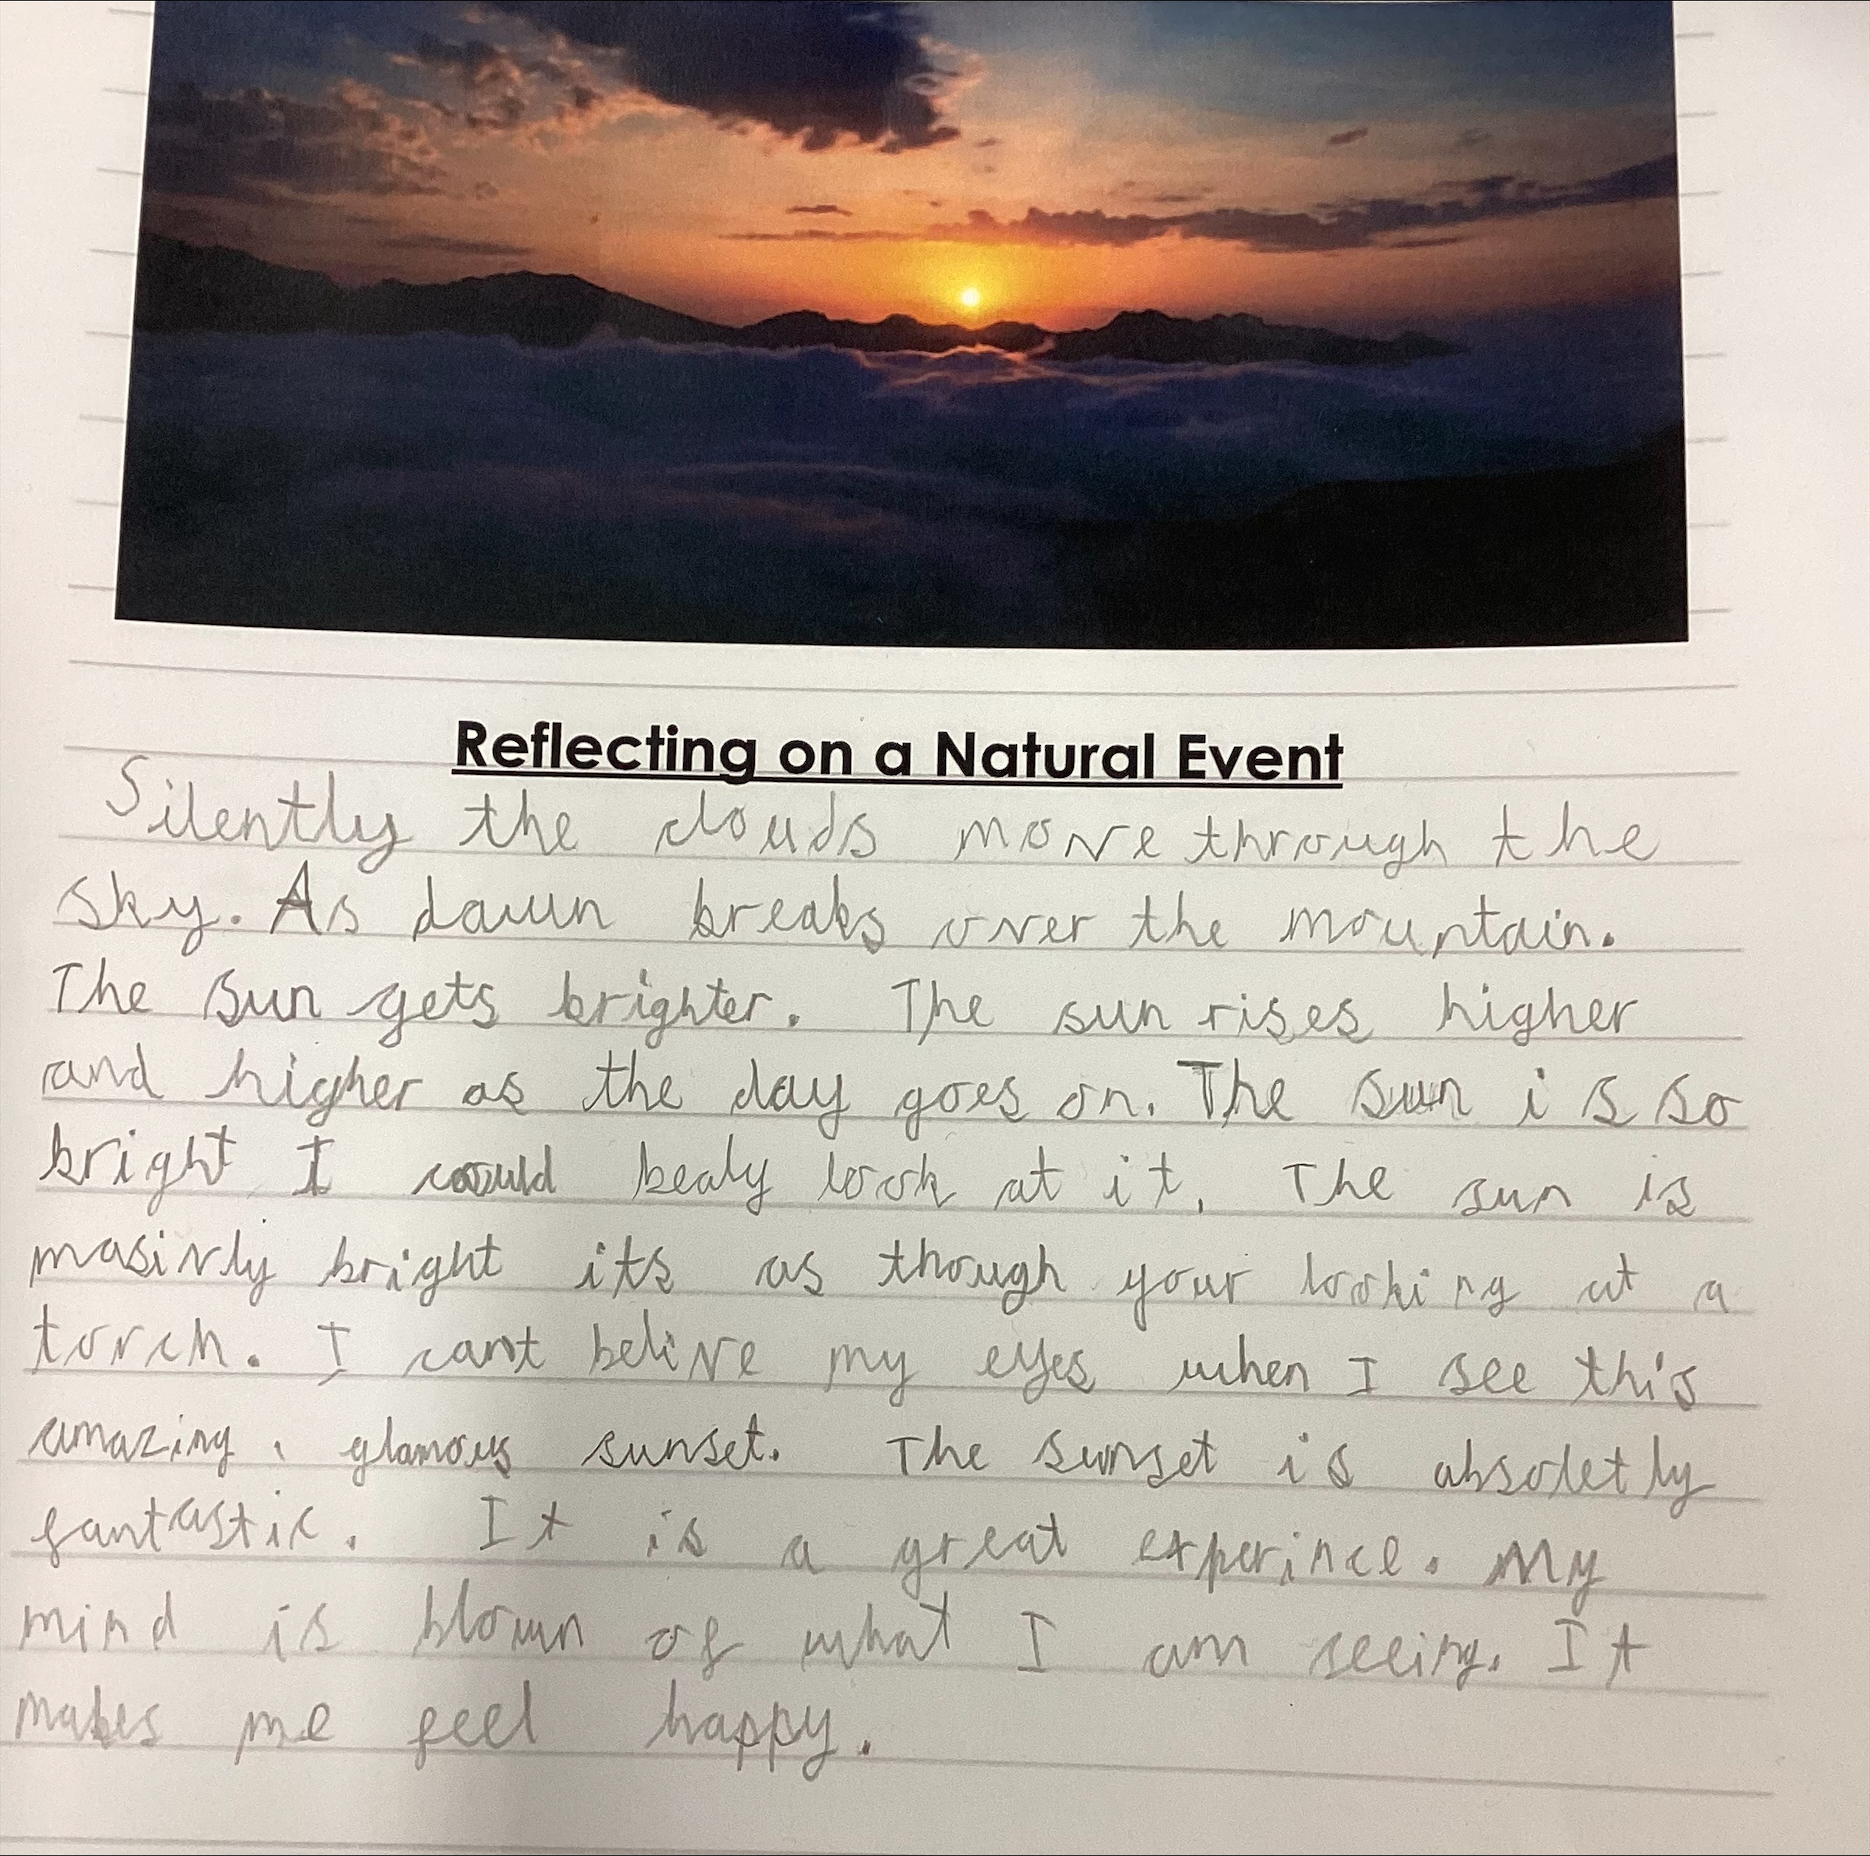 Reflecting on a Natural Event
Silently the clouds move through the
sky. As dawn breaks over the mountain.
The sun gets brighter. The sun rises higher
and higher as the day goes on. The sun is so
bright I could bealy look at it. The sun is
masivly bright its as though your looking at a
torch. I cant belive my eyes when I see this
amazing, glamous sunset. The sunset is absoletly
fantastic. It is a great experince. My
mind is blown of what I am seeing. It
makes me feel happy.